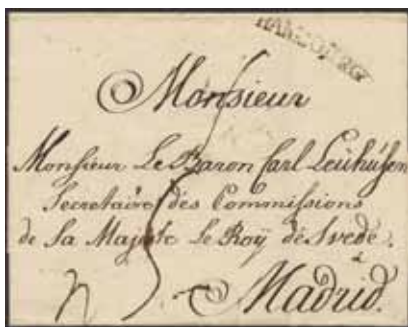 HAMBOURG
Monsieur
Monsieur Le Baron Carl Leuhusen
Secretaire des Commissions
de Sa Majeste Le Roÿ de Svede.
a
Madrid.